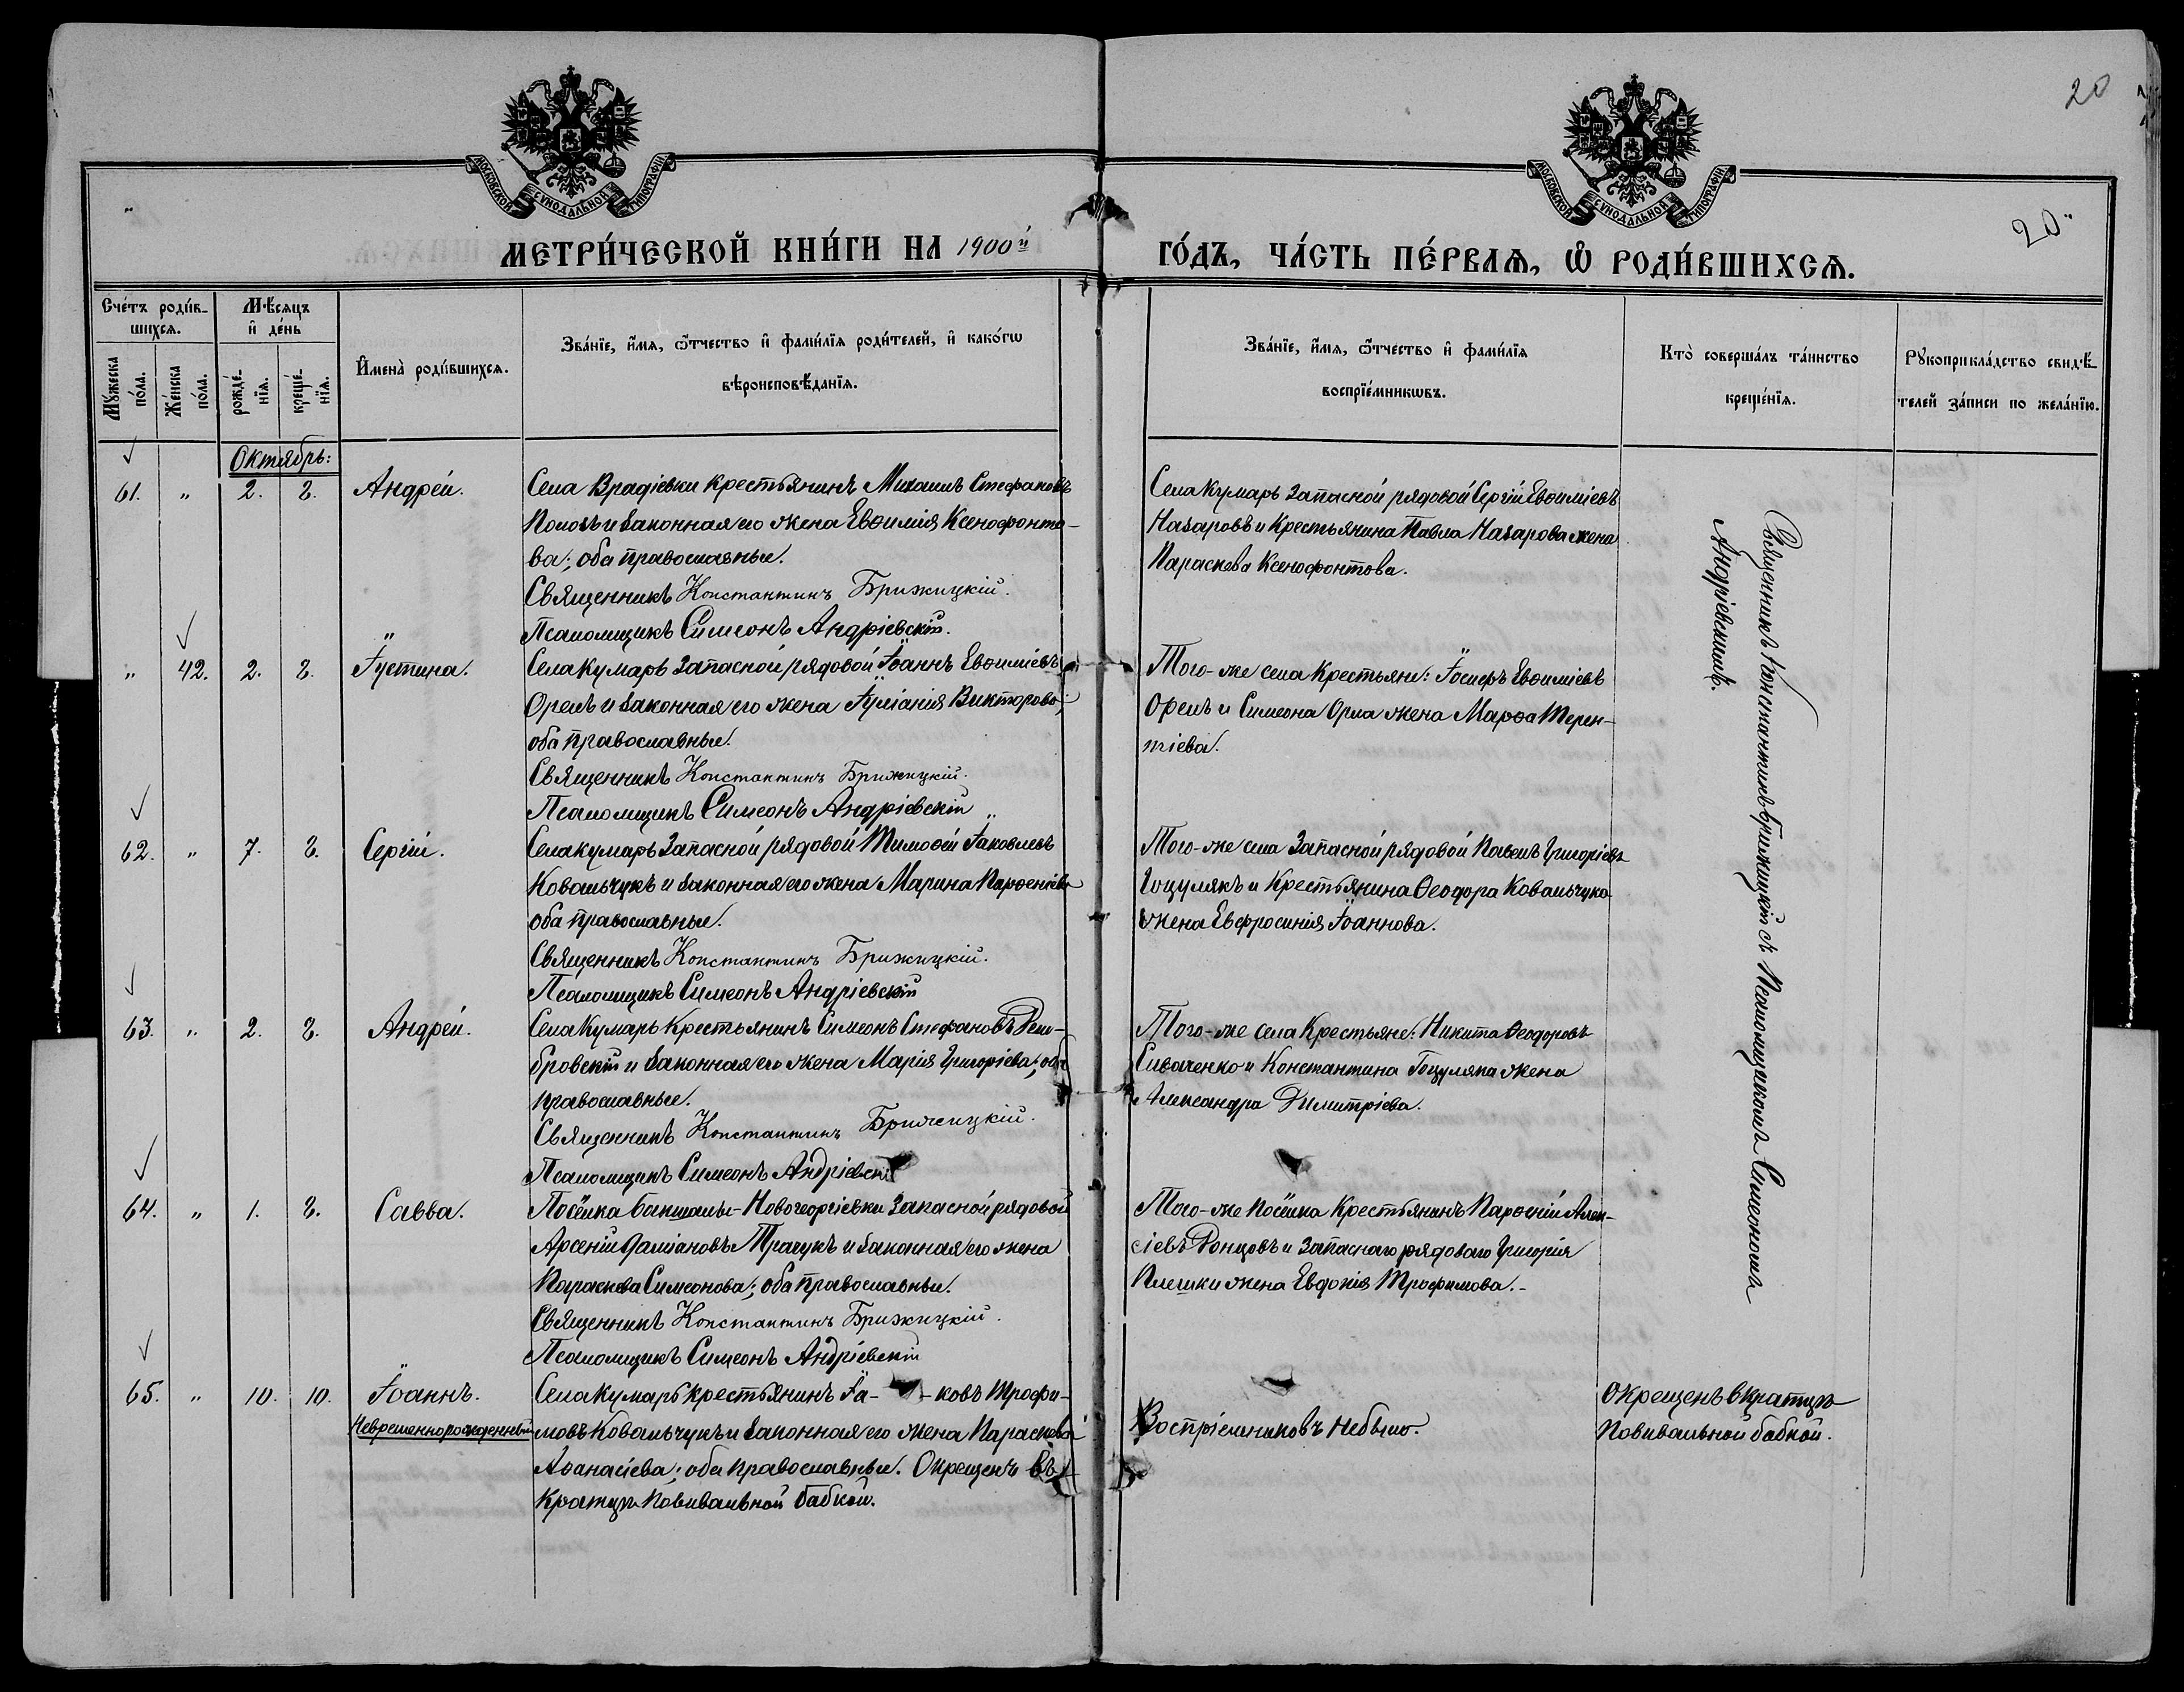 20
МОСКОВСКОЙ СѴНОДАЛЬНОЙ ТИПОГРАФІИ
МОСКОВСКОЙ СѴНОДАЛЬНОЙ ТИПОГРАФІИ
20
МЕТРИ́ЧЕСКОЙ КНИ́ГИ НА 1900й
ГО́ДЪ, ЧА́СТЬ ПЕ́РВАѦ, Ѡ РОДИ́ВШИХСѦ.
Сче́тъ роди́в-
шихсѧ.
Мꙋжеска
по́ла.
Же́нска
по́ла.
Мѣ́сѧцъ
и҆ де́нь
рожде́-
нїѧ.
креще́-
нїѧ.
И҆мена̀ роди́вшихсѧ.
Зва́нїе, и҆́мѧ, ѻ҆́тчество и҆ фами́лїѧ роди́телей, и҆ како́гѡ
вѣроисповѣ́данїѧ.
Зва́нїе, и҆́мѧ, ѻ҆́тчество и҆ фами́лїѧ
воспрїе́мникѡвъ.
Кто̀ соверша́лъ та́инство
креще́нїѧ.
Рꙋкоприкла́дство свидѣ́-
телей за́писи по жела́нїю.
Октябрь:
61. " 2. 8. Андрей.
Села Врадіевки крестьянинъ Михаилъ Стефановъ
Попозъ и законная его жена Евѳимія Ксенофонто-
ва; оба православные.
Священникъ Константинъ Брижицкій.
Псаломщикъ Симеонъ Андріевскій.
Села Кумарь запасной рядовой Сергій Евѳиміевъ
Назаровъ и крестьянина Павла Назарова жена
Параскева Ксенофонтова.
" 42. 2. 8. Іустина.
Села Кумарь запасной рядовой Іоаннъ Евѳиміевъ
Орелъ и законная его жена Іуліанія Викторова;
оба православные.
Священникъ Константинъ Брижицкій.
Псаломщикъ Симеонъ Андріевскій
Того-же села крестьяне: Іосифъ Евѳиміевъ
Орелъ и Симеона Орла жена Марѳа Терен-
тіева.
62. " 7. 8. Сергій.
Села Кумарь запасной рядовой Тимоѳей Іаковлевъ
Ковальчукъ и законная его жена Марина Парѳеніева
оба православные.
Священникъ Константинъ Брижицкій.
Псаломщикъ Симеонъ Андріевскій
Того-же села запасной рядовой Павелъ Григоріевъ
Гоцулякъ и крестьянина Ѳеодора Ковальчука
жена Евфросинія Іоаннова.
63. " 2. 8. Андрей.
Села Кумарь крестьянинъ Симеонъ Стефановъ Дем-
бровскій и законная его жена Марія Григоріева; оба
православные.
Священникъ Константинъ Брижицкій.
Псаломщикъ Симеонъ Андріевскій
Того-же села крестьяне: Никита Ѳеодоровъ
Сиваченко и Константина Гоцуляка жена
Александра Димитріева.
64. " 1. 8. Савва.
Посёлка Бакшалы-Новогеоргіевки запасной рядовой
Арсеній Даміановъ Трачукъ и законная его жена
Параскева Симеонова; оба православные.
Священникъ Константинъ Брижицкій.
Псаломщикъ Симеонъ Андріевскій
Того-же посёлка крестьянинъ Парѳеній Алек-
сіевъ Донцовъ и запаснаго рядоваго Григорія
Плешки жена Евдокія Трофимова.-
65. " 10. 10. Іоаннъ.
Невременнорожденный
Села Кумарь крестьянинъ Іа- -ковъ Трофи-
мовъ Ковальчукъ и законная его жена Параскева
Аѳанасіева; оба православные. Окрещенъ въ
кратцѣ повивальной бабкой.
Воспріемниковъ не было.
Окрещенъ вкратцѣ
повивальной бабкой.
Священникъ Константинъ Брижицкій съ Псаломщикомъ Симеономъ
Андріевскимъ.